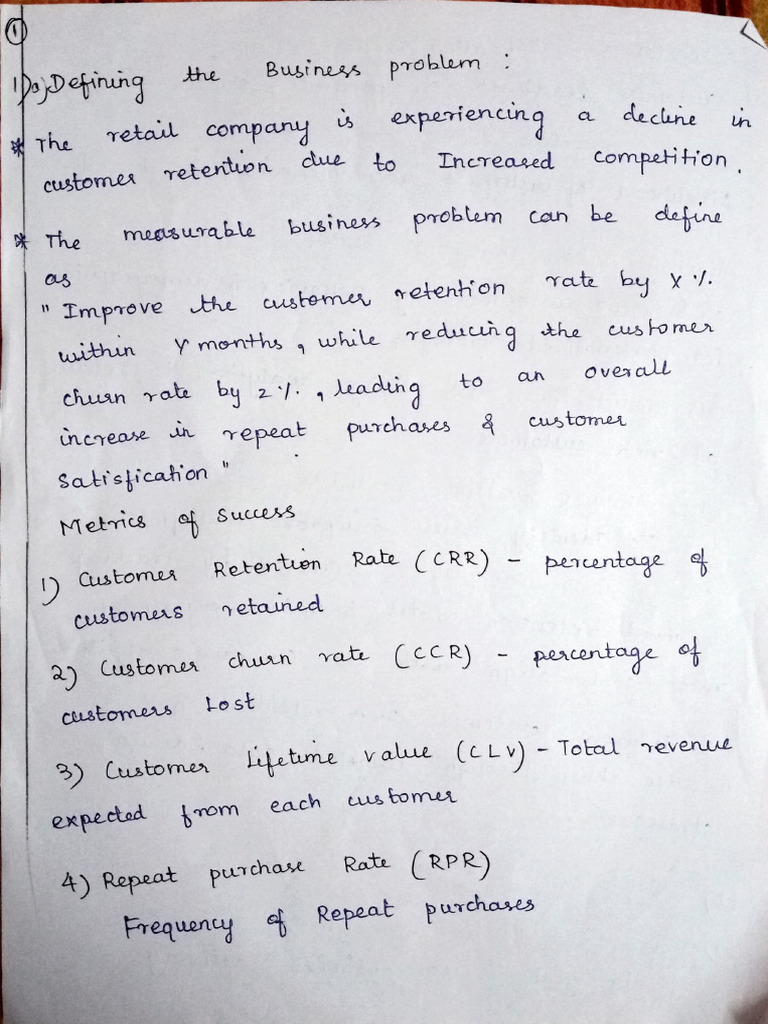 1
1)a) Defining the Business problem :
* The retail company is experiencing a decline in
customer retention due to Increased competition.
* The measurable business problem can be define
as
" Improve the customer retention rate by X %
within Y months, while reducing the customer
churn rate by 2 %, leading to an overall
increase in repeat purchases & customer
Satisfication "
Metrics of Success
1) Customer Retention Rate (CRR) - percentage of
customers retained
2) Customer churn rate (CCR) - percentage of
customers Lost
3) Customer Lifetime value (CLV) - Total revenue
expected from each customer
4) Repeat purchase Rate (RPR)
Frequency of Repeat purchases